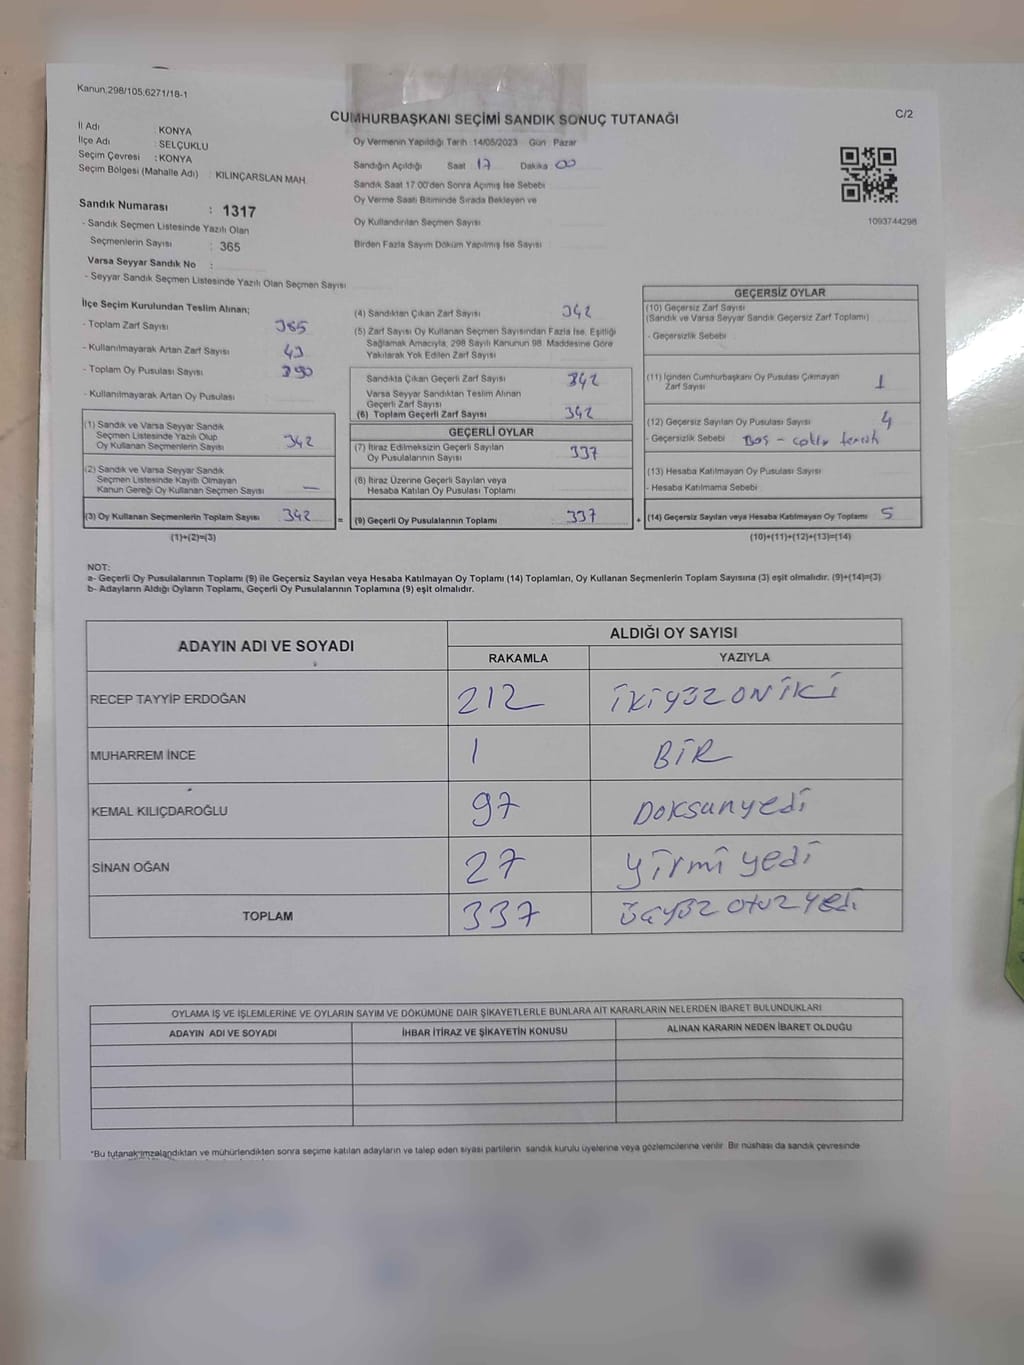 Kanun,298/105,6271/18-1
C/2
CUMHURBAŞKANI SEÇİMİ SANDIK SONUÇ TUTANAĞI
İl Adı : KONYA
İlçe Adı : SELÇUKLU
Seçim Çevresi : KONYA
Seçim Bölgesi (Mahalle Adı) : KILINÇARSLAN MAH.
Sandık Numarası : 1317
- Sandık Seçmen Listesinde Yazılı Olan
Seçmenlerin Sayısı : 365
Varsa Seyyar Sandık No :
- Seyyar Sandık Seçmen Listesinde Yazılı Olan Seçmen Sayısı
Oy Vermenin Yapıldığı Tarih :14/05/2023 Gün : Pazar
Sandığın Açıldığı Saat 17 Dakika 00
Sandık Saat 17:00'den Sonra Açımış İse Sebebi
Oy Verme Saati Bitiminde Sırada Bekleyen ve
Oy Kullandırılan Seçmen Sayısı
Birden Fazla Sayım Döküm Yapılmış İse Sayısı
1093744298
İlçe Seçim Kurulundan Teslim Alınan;
- Toplam Zarf Sayısı 385
- Kullanılmayarak Artan Zarf Sayısı 43
- Toplam Oy Pusulası Sayısı 390
- Kullanılmayarak Artan Oy Pusulası
(1) Sandık ve Varsa Seyyar Sandık
Seçmen Listesinde Yazılı Olup
Oy Kullanan Seçmenlerin Sayısı 342
(2) Sandık ve Varsa Seyyar Sandık
Seçmen Listesinde Kayıtlı Olmayan
Kanun Gereği Oy Kullanan Seçmen Sayısı —
(3) Oy Kullanan Seçmenlerin Toplam Sayısı 342 =
(1)+(2)=(3)
(4) Sandıktan Çıkan Zarf Sayısı 342
(5) Zarf Sayısı Oy Kullanan Seçmen Sayısından Fazla İse, Eşitliği
Sağlamak Amacıyla, 298 Sayılı Kanunun 98. Maddesine Göre
Yakılarak Yok Edilen Zarf Sayısı
Sandıkta Çıkan Geçerli Zarf Sayısı 342
Varsa Seyyar Sandıktan Teslim Alınan
Geçerli Zarf Sayısı
(6) Toplam Geçerli Zarf Sayısı 342
GEÇERLİ OYLAR
(7) İtiraz Edilmeksizin Geçerli Sayılan
Oy Pusulalarının Sayısı 337
(8) İtiraz Üzerine Geçerli Sayılan veya
Hesaba Katılan Oy Pusulası Toplamı
(9) Geçerli Oy Pusulalarının Toplamı 337 +
GEÇERSİZ OYLAR
(10) Geçersiz Zarf Sayısı
(Sandık ve Varsa Seyyar Sandık Geçersiz Zarf Toplamı)
- Geçersizlik Sebebi
(11) İçinden Cumhurbaşkanı Oy Pusulası Çıkmayan
Zarf Sayısı 1
(12) Geçersiz Sayılan Oy Pusulası Sayısı 4
- Geçersizlik Sebebi Boş -
(13) Hesaba Katılmayan Oy Pusulası Sayısı
- Hesaba Katılmama Sebebi
(14) Geçersiz Sayılan veya Hesaba Katılmayan Oy Toplamı 5
(10)+(11)+(12)+(13)=(14)
NOT:
a- Geçerli Oy Pusulalarının Toplamı (9) ile Geçersiz Sayılan veya Hesaba Katılmayan Oy Toplamı (14) Toplamları, Oy Kullanan Seçmenlerin Toplam Sayısına (3) eşit olmalıdır. (9)+(14)=(3)
b- Adayların Aldığı Oyların Toplamı, Geçerli Oy Pusulalarının Toplamına (9) eşit olmalıdır.
ADAYIN ADI VE SOYADI ALDIĞI OY SAYISI
RAKAMLA YAZIYLA
RECEP TAYYİP ERDOĞAN 212 İKİYÜZONİKİ
MUHARREM İNCE 1 BİR
KEMAL KILIÇDAROĞLU 97 Doksanyedi
SİNAN OĞAN 27 yirmi yedi
TOPLAM 337 üçyüz otuz yedi
OYLAMA İŞ VE İŞLEMLERİNE VE OYLARIN SAYIM VE DÖKÜMÜNE DAİR ŞİKAYETLERLE BUNLARA AİT KARARLARIN NELERDEN İBARET BULUNDUKLARI
ADAYIN ADI VE SOYADI İHBAR İTİRAZ VE ŞİKAYETİN KONUSU ALINAN KARARIN NEDEN İBARET OLDUĞU
*Bu tutanak imzalandıktan ve mühürlendikten sonra seçime katılan adayların ve talep eden siyasi partilerin sandık kurulu üyelerine veya gözlemcilerine verilir. Bir nüshası da sandık çevresinde